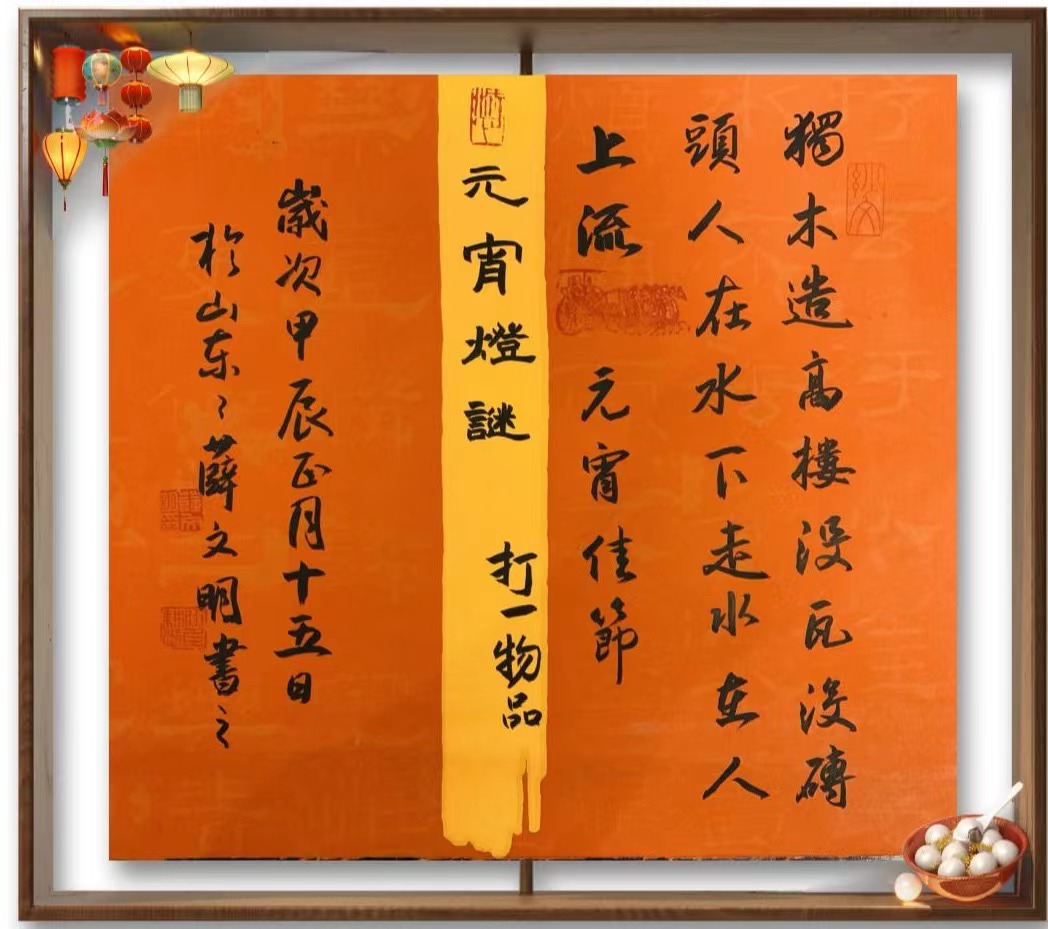 獨木造高樓没瓦没磚
頭人在水下走水在人
上流 元宵佳節
元宵燈謎 打一物品
歲次甲辰正月十五日
於山东〻薛文明書之